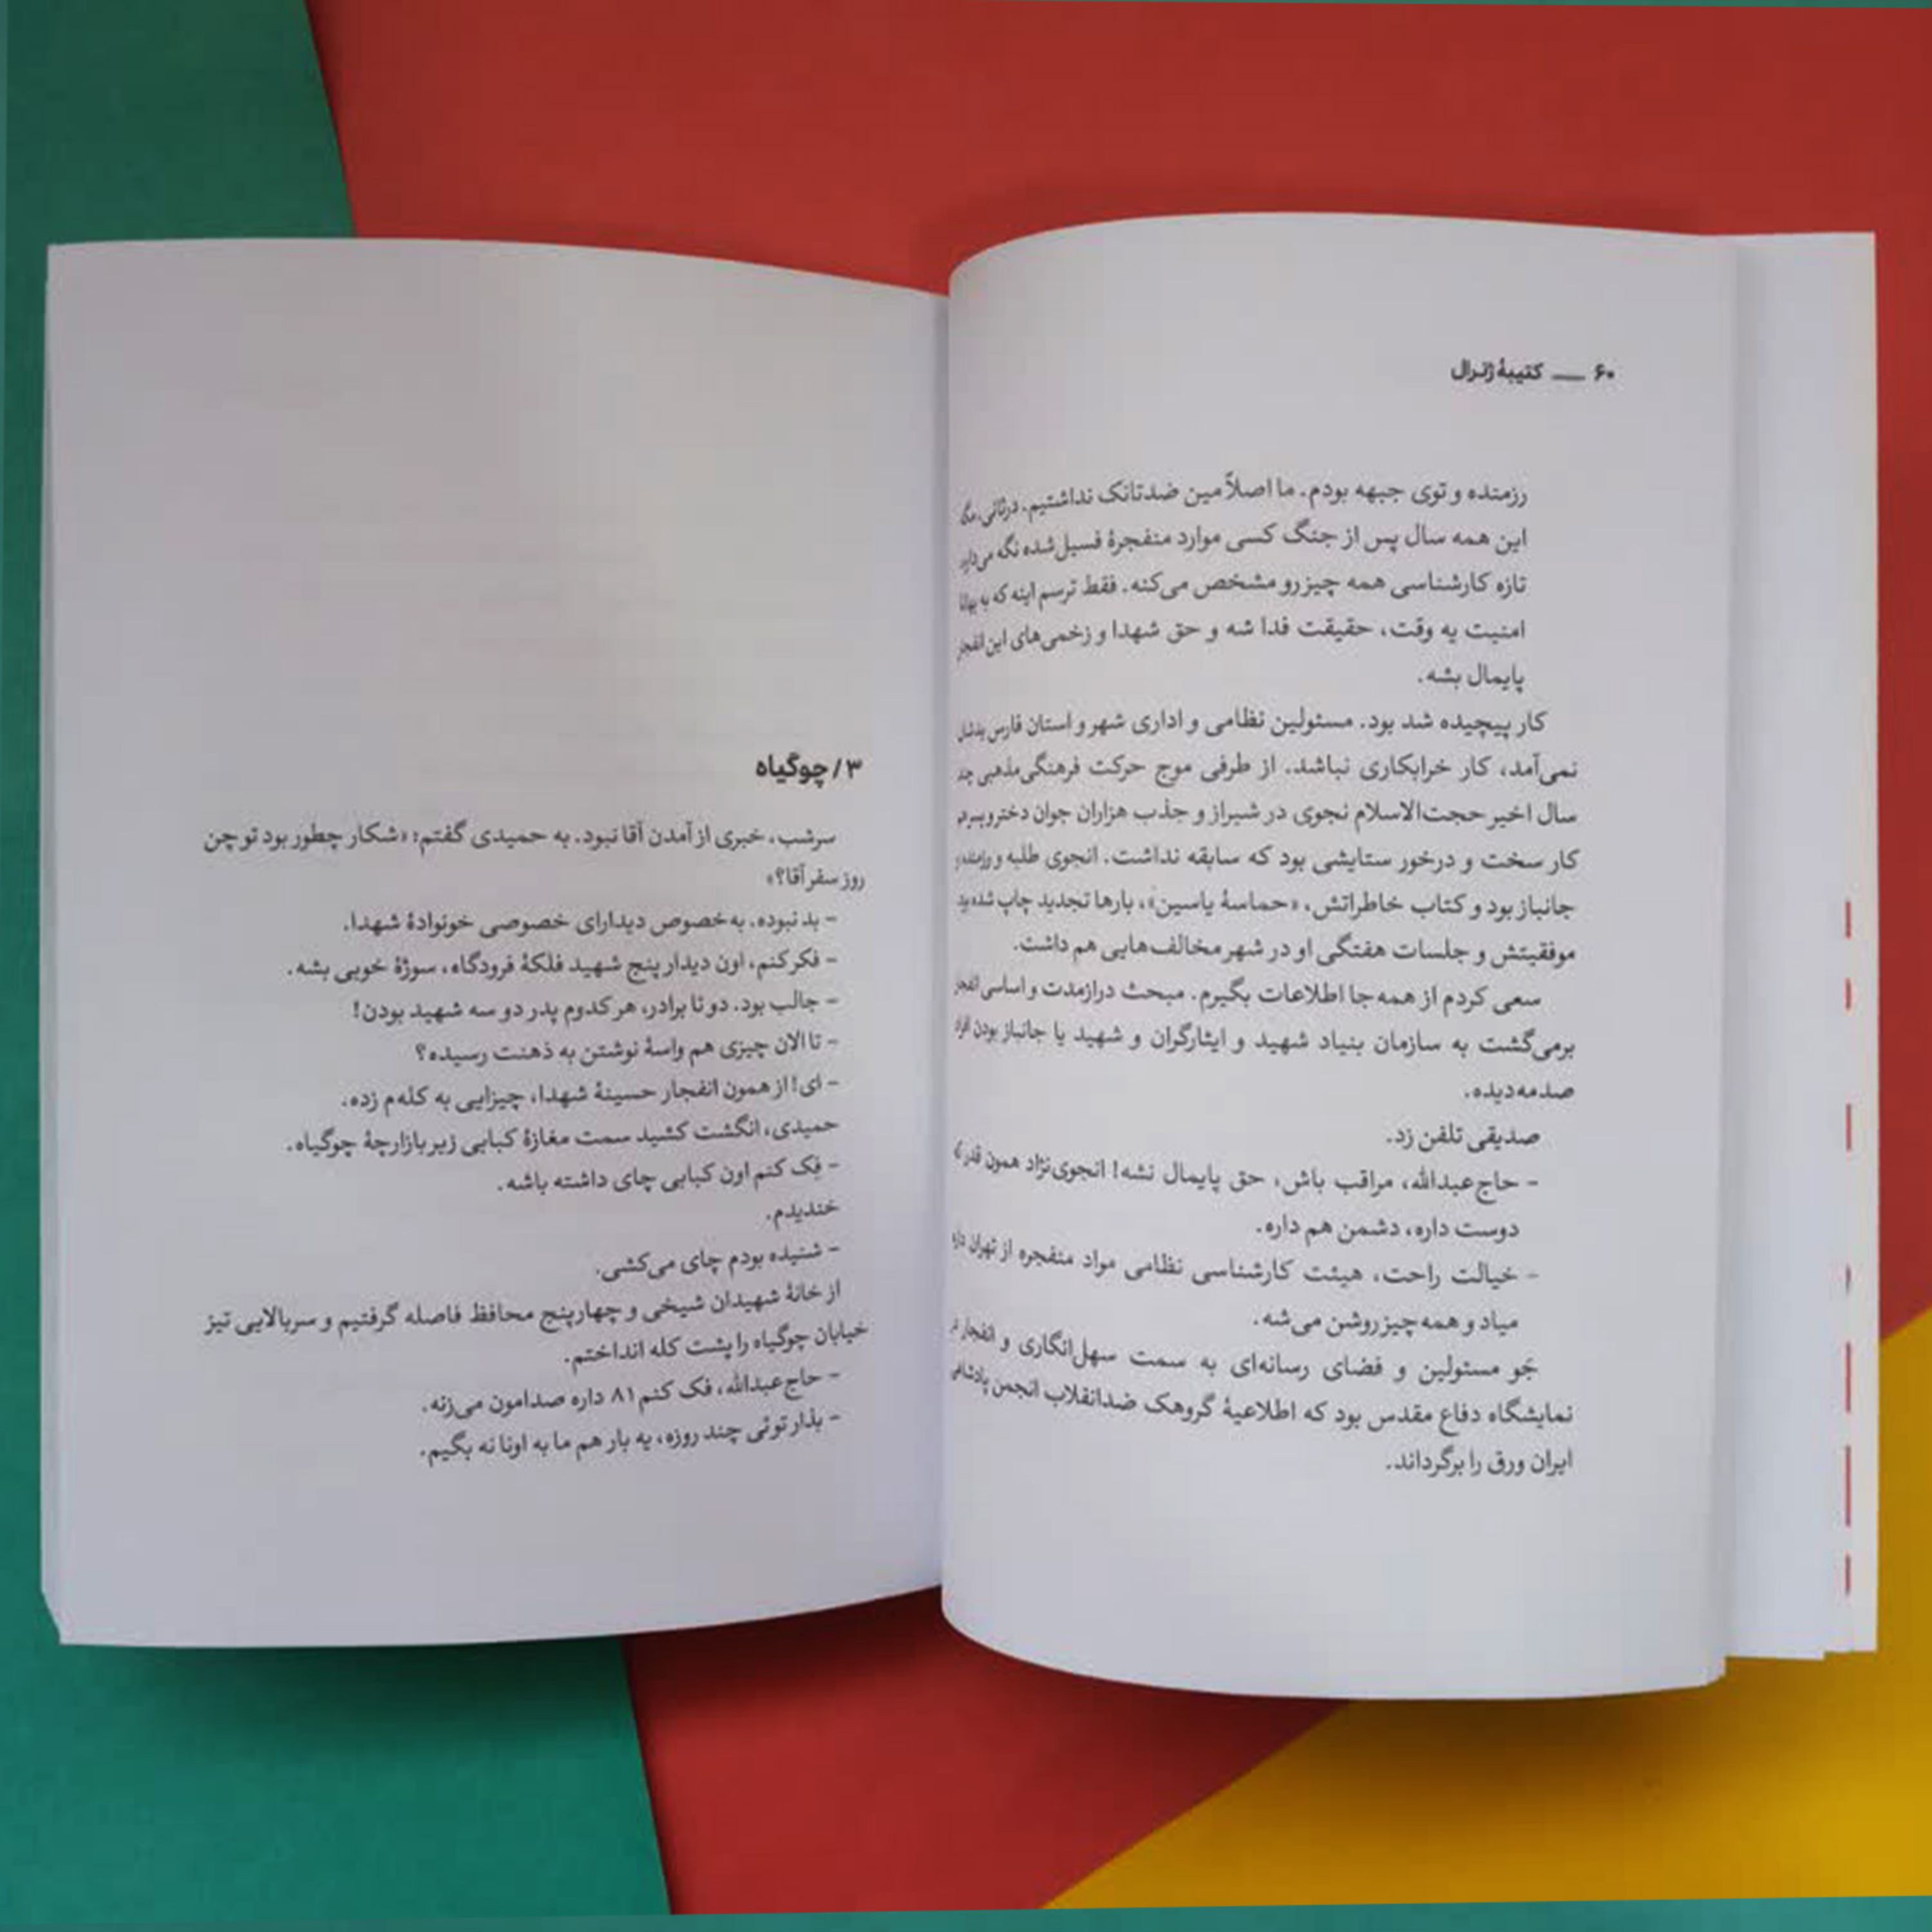 ۶۰ ــــ کتیبهٔ ژنرال
رزمنده و توی جبهه بودم. ما اصلاً مین ضدتانک نداشتیم. درثانی، مگه
این همه سال پس از جنگ کسی موارد منفجرهٔ فسیل‌شده نگه می‌داره
تازه کارشناسی همه چیز رو مشخص می‌کنه. فقط ترسم اینه که به
امنیت یه وقت، حقیقت فدا شه و حق شهدا و زخمی‌های این
پایمال بشه.
کار پیچیده شد بود. مسئولین نظامی و اداری شهر و استان فارس
نمی‌آمد، کار خرابکاری نباشد. از طرفی موج حرکت فرهنگی‌مذهبی چند
سال اخیر حجت‌الاسلام نجوی در شیراز و جذب هزاران جوان دختر و پسر هم
کار سخت و درخور ستایشی بود که سابقه نداشت. انجوی طلبه و رزمنده و
جانباز بود و کتاب خاطراتش، «حماسهٔ یاسین»، بارها تجدید چاپ شده بود.
موفقیتش و جلسات هفتگی او در شهر مخالف‌هایی هم داشت.
سعی کردم از همه‌جا اطلاعات بگیرم. مبحث درازمدت و اساسی
برمی‌گشت به سازمان بنیاد شهید و ایثارگران و شهید یا جانباز بودن افراد
صدمه‌دیده.
صدیقی تلفن زد.
- حاج‌عبدالله، مراقب باش، حق پایمال نشه! انجوی‌نژاد همون قدر که
دوست داره، دشمن هم داره.
- خیالت راحت، هیئت کارشناسی نظامی مواد منفجره از تهران داره
میاد و همه‌چیز روشن می‌شه.
جَو مسئولین و فضای رسانه‌ای به سمت سهل‌انگاری و انفجار در
نمایشگاه دفاع مقدس بود که اطلاعیهٔ گروهک ضدانقلاب انجمن پادشاهی
ایران ورق را برگرداند.
۳/ چوگیاه
سرشب، خبری از آمدن آقا نبود. به حمیدی گفتم: «شکار چطور بود تو چن
روز سفر آقا؟»
- بد نبوده. به‌خصوص دیدارای خصوصی خونوادهٔ شهدا.
- فکر کنم، اون دیدار پنج شهید فلکهٔ فرودگاه، سوژهٔ خوبی بشه.
- جالب بود. دو تا برادر، هر کدوم پدر دو سه شهید بودن!
- تا الان چیزی هم واسهٔ نوشتن به ذهنت رسیده؟
- ای! از همون انفجار حسینهٔ شهدا، چیزایی به کله‌م زده.
حمیدی، انگشت کشید سمت مغازهٔ کبابی زیر بازارچهٔ چوگیاه.
- فِک کنم اون کبابی چای داشته باشه.
خندیدم.
- شنیده بودم چای می‌کشی.
از خانهٔ شهیدان شیخی و چهارپنج محافظ فاصله گرفتیم و سربالایی تیز
خیابان چوگیاه را پشت کله انداختم.
- حاج‌عبدالله، فک کنم ۸۱ داره صدامون می‌زنه.
- بذار توئی چند روزه، یه بار هم ما به اونا نه بگیم.